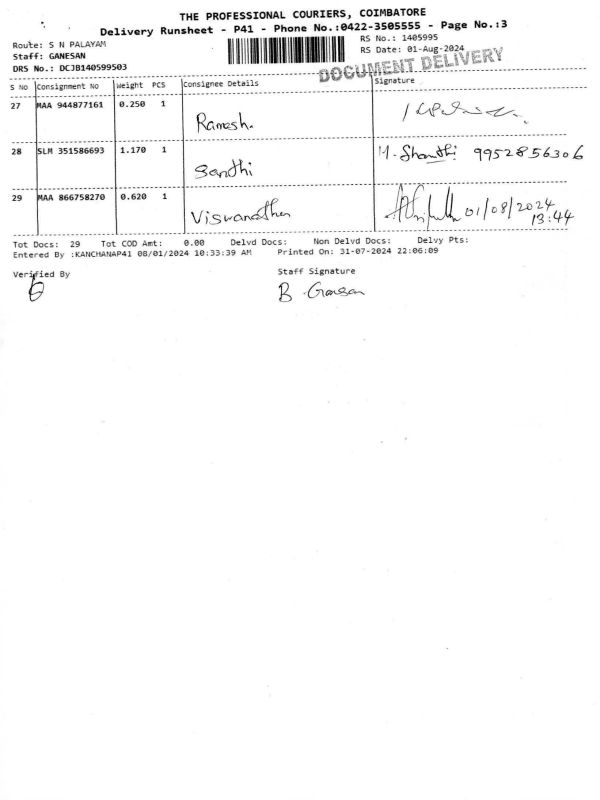 THE PROFESSIONAL COURIERS, COIMBATORE
Delivery Runsheet - P41 - Phone No.:0422-3505555 - Page No.:3
Route: S N PALAYAM
RS No.: 1405995
Staff: GANESAN
RS Date: 01-Aug-2024
DRS No.: DCJB140599503
DOCUMENT DELIVERY
S No Consignment No Weight PCS Consignee Details Signature
27 MAA 944877161 0.250 1
Ramesh.
28 SLM 351586693 1.170 1 M. Shanthi 9952856306
Santhi
29 MAA 866758270 0.620 1
Viswanathan 01/08/2024
13:44
Tot Docs: 29 Tot COD Amt: 0.00 Delvd Docs: Non Delvd Docs: Delvy Pts:
Entered By :KANCHANAP41 08/01/2024 10:33:39 AM Printed On: 31-07-2024 22:06:09
Verified By Staff Signature
B Ganesan